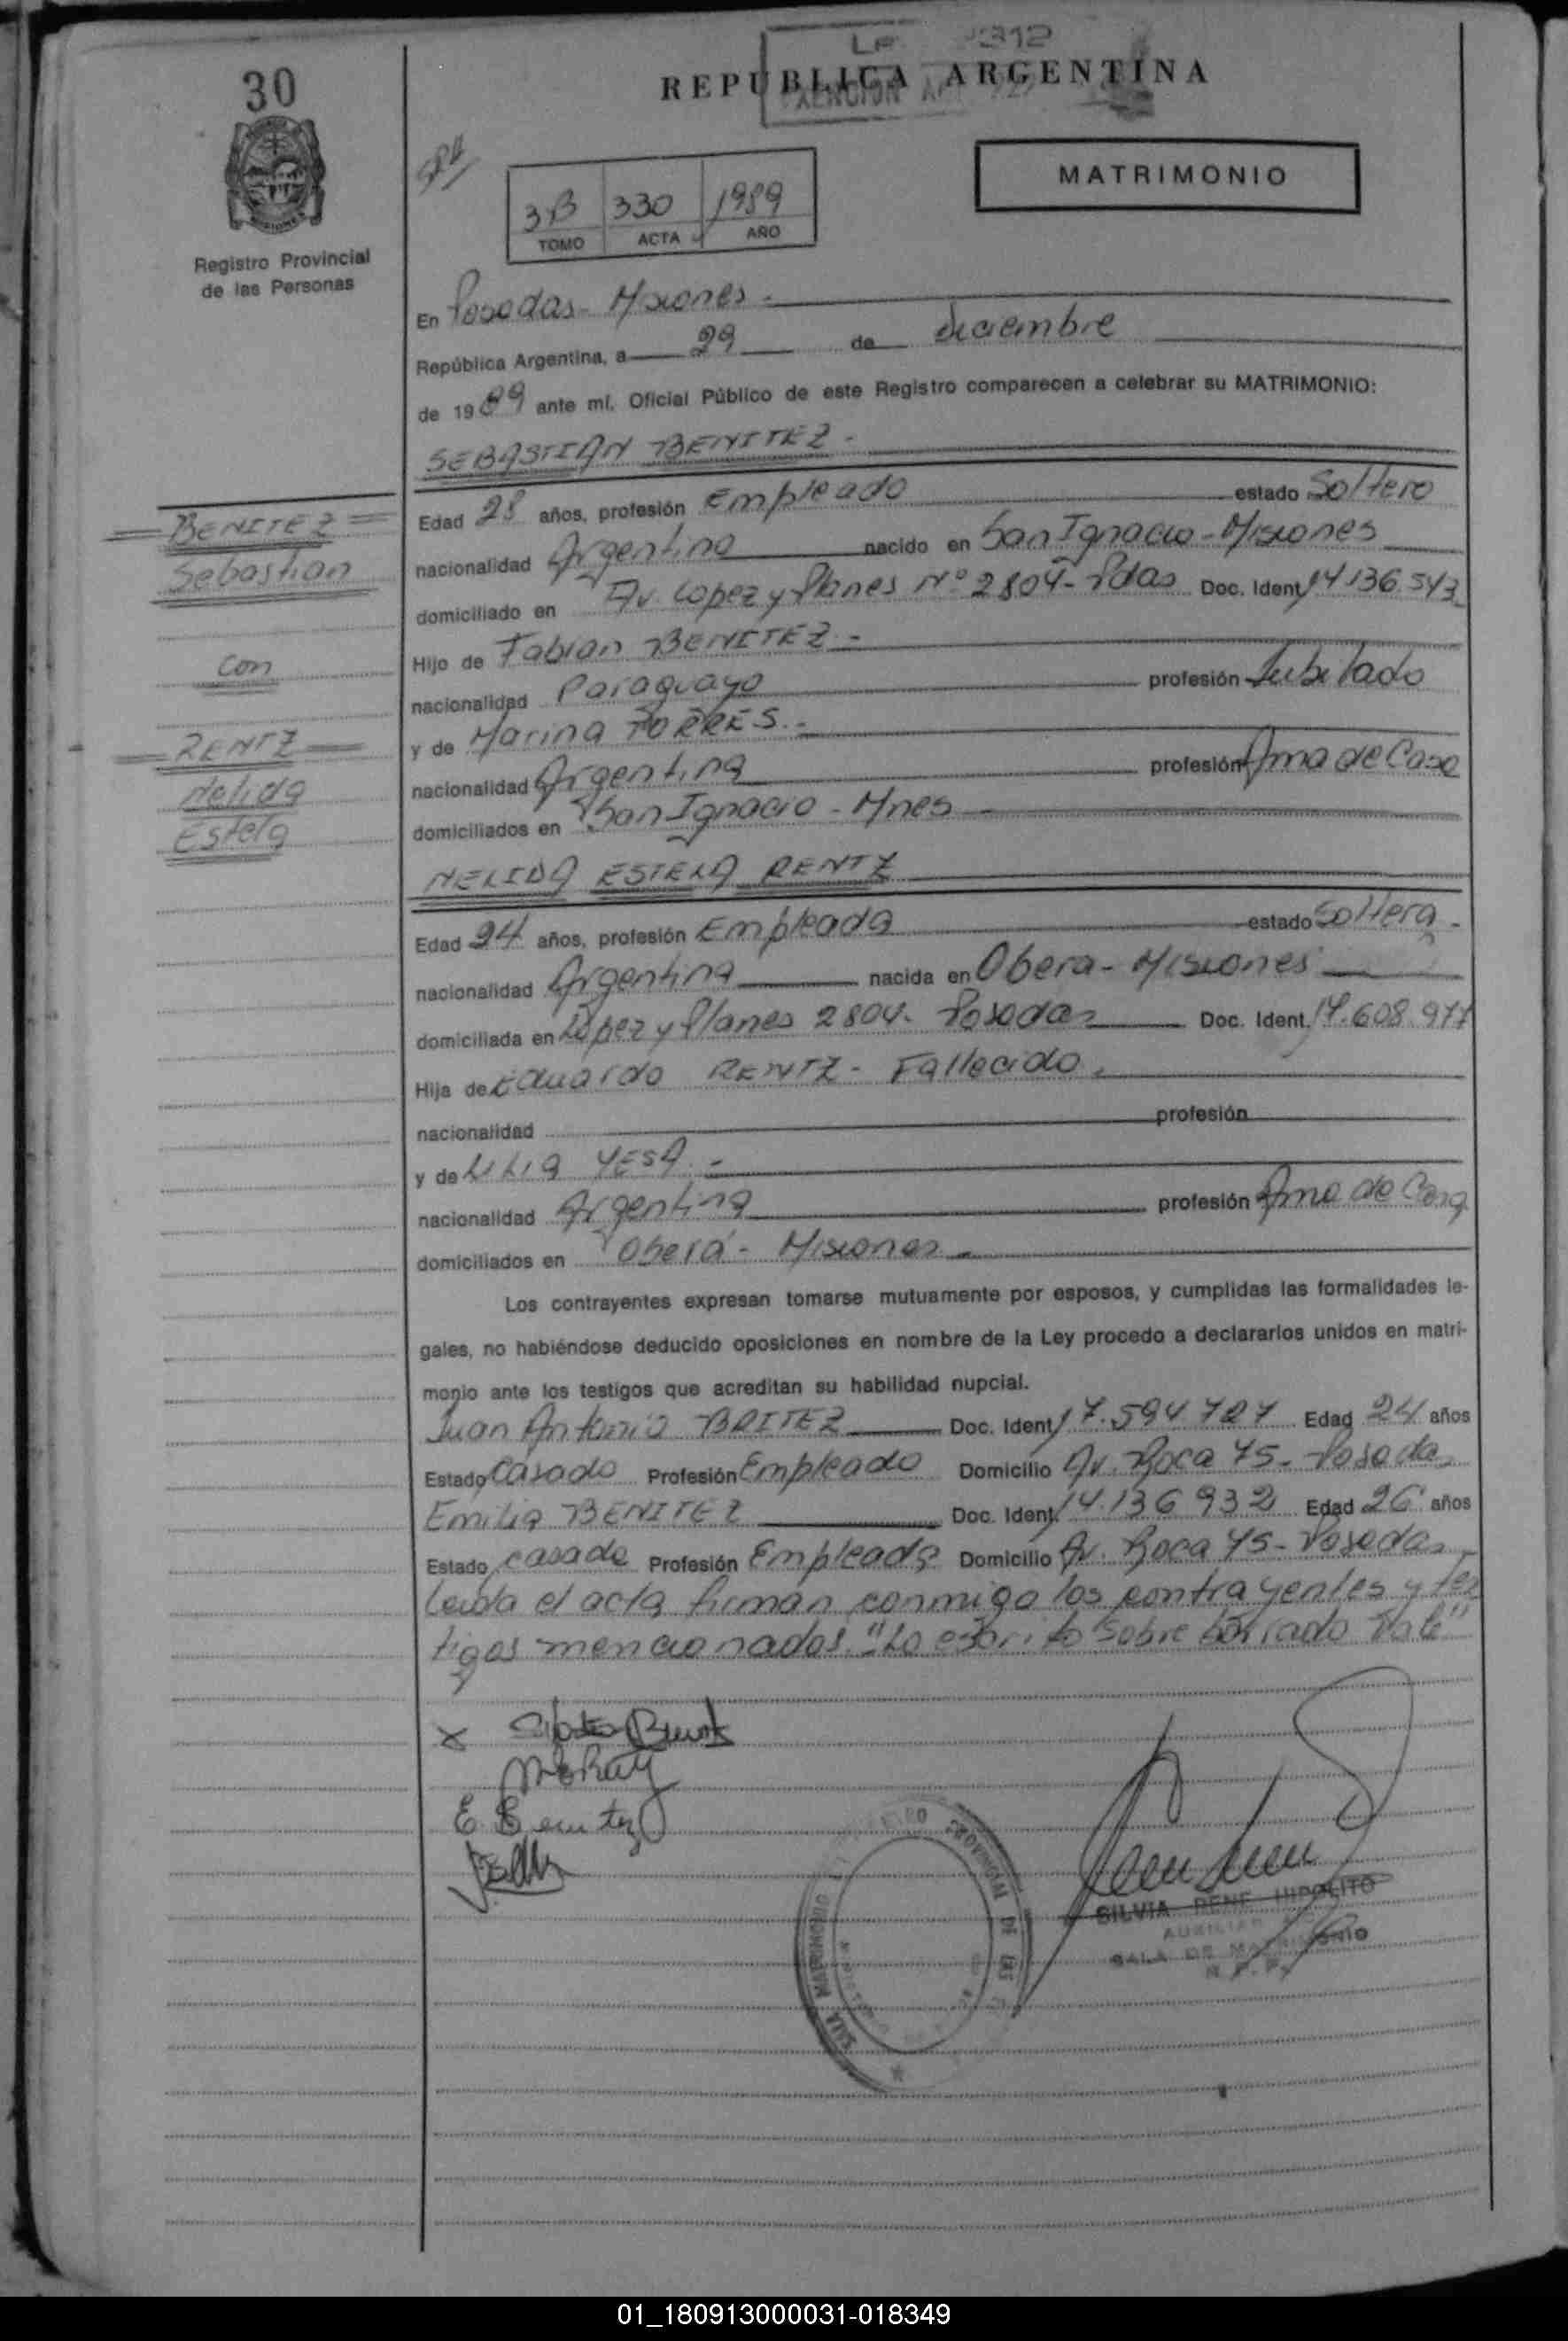 30
REPUBLICA ARGENTINA
MATRIMONIO
Registro Provincial
de las Personas
3B 330 1989
TOMO ACTA AÑO
En Posadas - Misiones -
República Argentina, a 29 de diciembre
de 1989 ante mí, Oficial Público de este Registro comparecen a celebrar su MATRIMONIO:
SEBASTIAN BENITEZ -
BENITEZ
Sebastian
con
RENTZ
Nelida
Estela
Edad 28 años, profesión Empleado estado Soltero
nacionalidad Argentino nacido en San Ignacio - Misiones
domiciliado en Av. Lopez y Planes Nº 2804 - Pdas Doc. Ident. 14.136.543
Hijo de Fabian BENITEZ -
nacionalidad Paraguayo profesión Jubilado
y de Marina TORRES. -
nacionalidad Argentina profesión Ama de Casa
domiciliados en San Ignacio - Mnes
NELIDA ESTELA RENTZ
Edad 24 años, profesión Empleada estado Soltera -
nacionalidad Argentina nacida en Obera - Misiones
domiciliada en Lopez y Planes 2804 - Posadas Doc. Ident. 17.608.977
Hija de Eduardo RENTZ - Fallecido.
nacionalidad profesión
y de Lilia YESA -
nacionalidad Argentina profesión Ama de Casa
domiciliados en Oberá - Misiones -
Los contrayentes expresan tomarse mutuamente por esposos, y cumplidas las formalidades le-
gales, no habiéndose deducido oposiciones en nombre de la Ley procedo a declararlos unidos en matri-
monio ante los testigos que acreditan su habilidad nupcial.
Juan Antonio BRITEZ Doc. Ident. 17.594.727 Edad 24 años
Estado Casado Profesión Empleado Domicilio Av. Roca 75 - Posadas
Emilia BENITEZ Doc. Ident. 14.136.932 Edad 26 años
Estado casada Profesión Empleada Domicilio Av. Roca 75 - Posadas -
Leida el acta firman conmigo los contrayentes y tes
tigos mencionados. "Lo escrito sobre borrado Vale"
E. Benitez
SILVIA RENE HIPOLITO
AUXILIAR
SALA DE MATRIMONIO
01_180913000031-018349